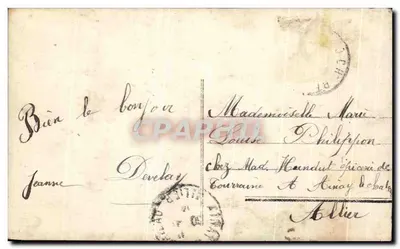 Bien le bonjour
Jeanne Develay
Mademoiselle Marie
Louise Philippon
chez Mad épicerie de
Touraine A Ainay le chateau
Allier
CPARAMA